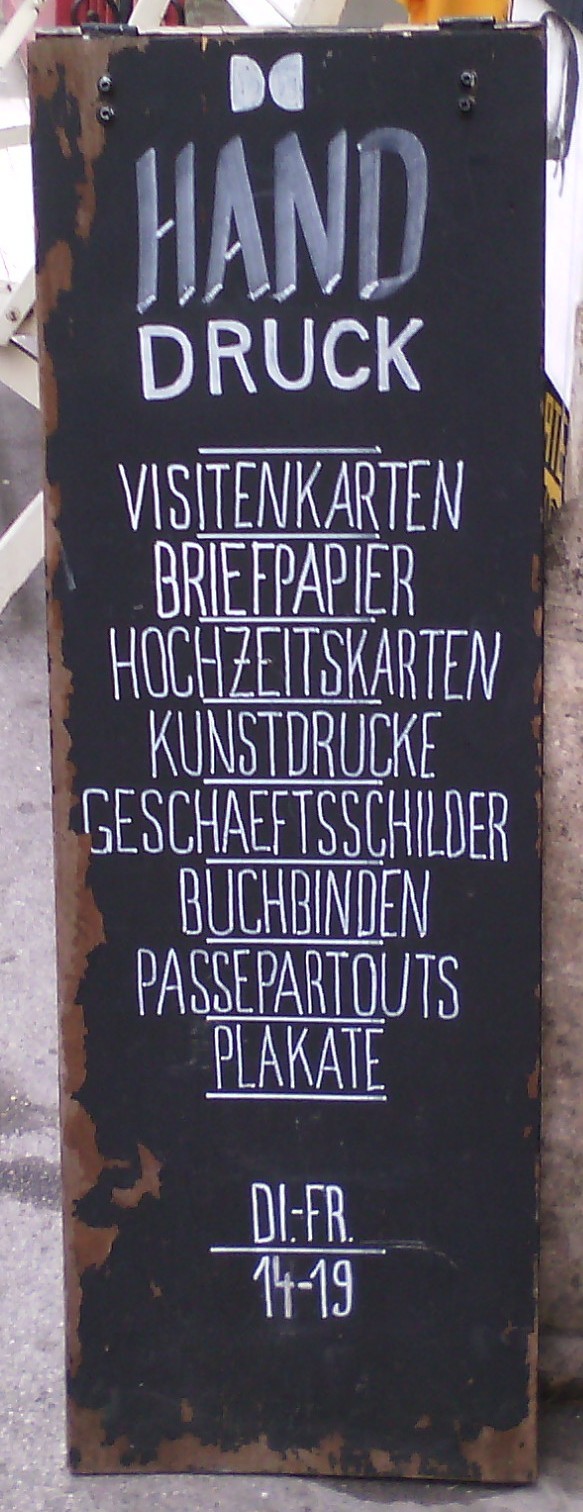 HAND
DRUCK
VISITENKARTEN
BRIEFPAPIER
HOCHZEITSKARTEN
KUNSTDRUCKE
GESCHAEFTSSCHILDER
BUCHBINDEN
PASSEPARTOUTS
PLAKATE
DI.-FR.
14-19